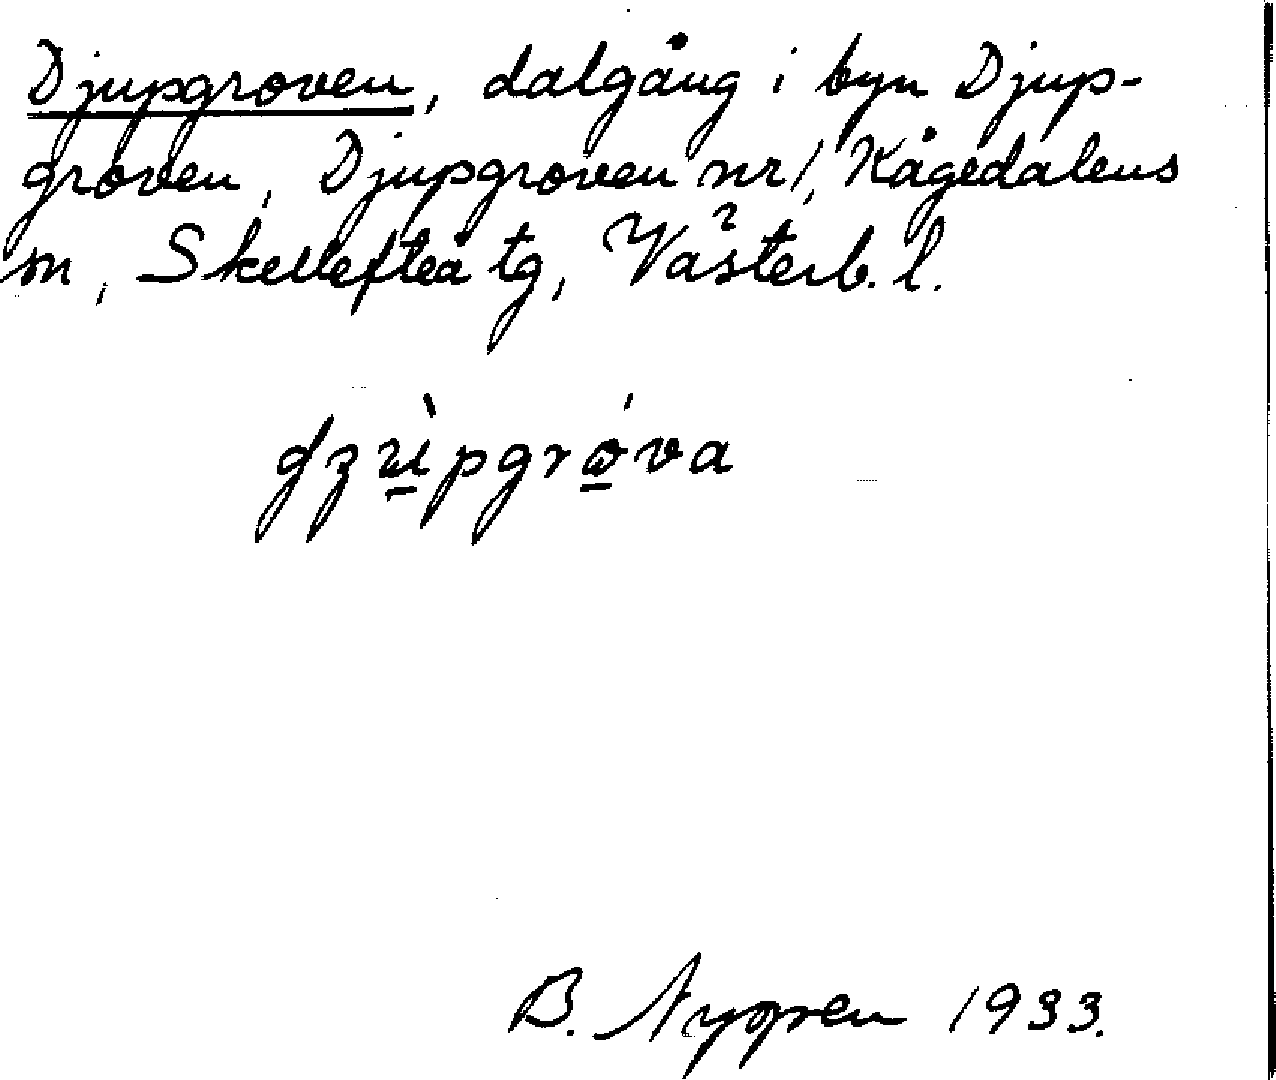 Djupgroven, dalgång i byn Djup-
groven, Djupgroven nr 1, Kågedalens
sn, Skellefteå tg, Västerb. l.
B. Nygren 1933.